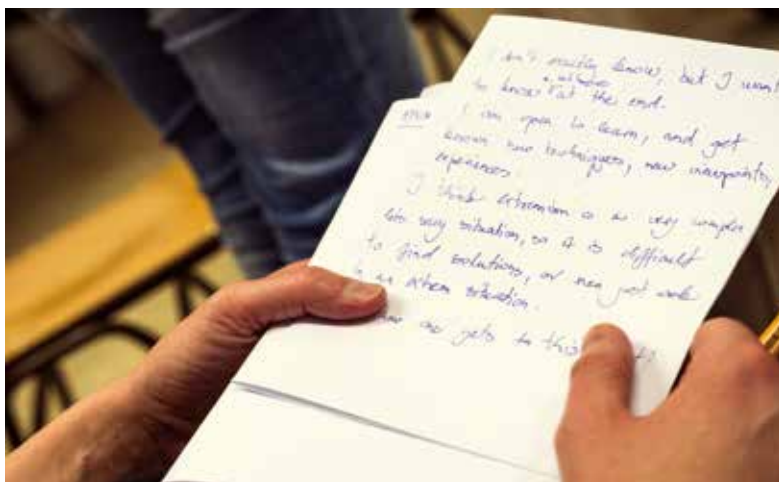 don't exactly know, but I want
to know at the end.
I am open to learn, and get
known new techniques, new viewpoints,
experiences.
I think extremism is a very complex
situation, so it is difficult
to find solutions, or even just work
in an situation.
one gets to this